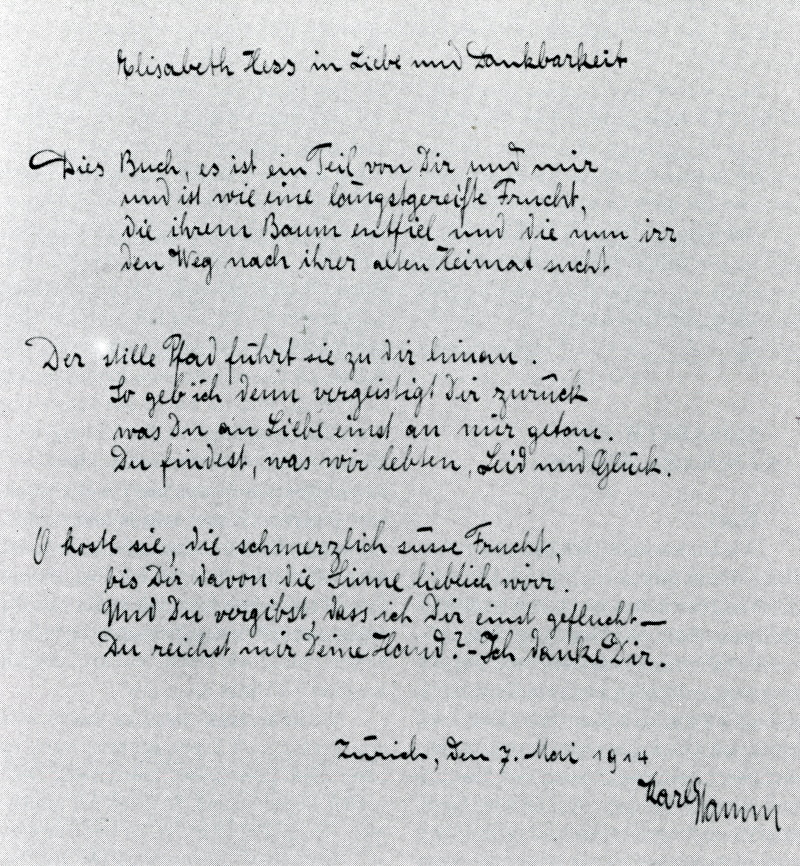 Elisabeth Hess in Liebe und Dankbarkeit
Dies Buch, es ist ein Teil von Dir und mir
und ist wie eine längstgereifte Frucht,
die ihrem Baum entfiel und die nun irr
den Weg nach ihrer alten Heimat sucht
Der stille Pfad führt sie zu dir hinan.
So geb ich denn vergeistigt Dir zurück
was Du an Liebe einst an mir getan.
Du findest, was wir lebten, Leid und Glück.
O koste sie, die schmerzlich süsse Frucht,
bis Dir davon die Sinne lieblich wirr.
Und Du vergibst, dass ich Dir einst geflucht —
Du reichst mir Deine Hand? - Ich danke Dir.
Zürich, den 7. Mai 1914
Karl Stamm